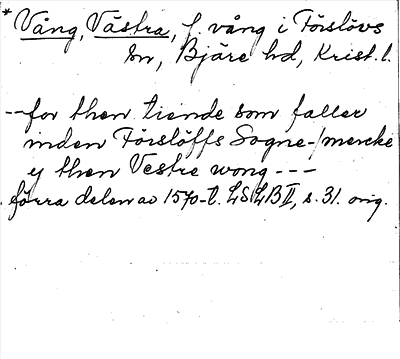 * Vång, Västra, f. vång i Förslövs
sn, Bjäre hd, Krist. l.
-- for then tiende som faller
inden Förslöffs Sogne-/mercke
y then Vestre wong ---
förra delen av 1570-t. LSLB II, s. 31. orig.